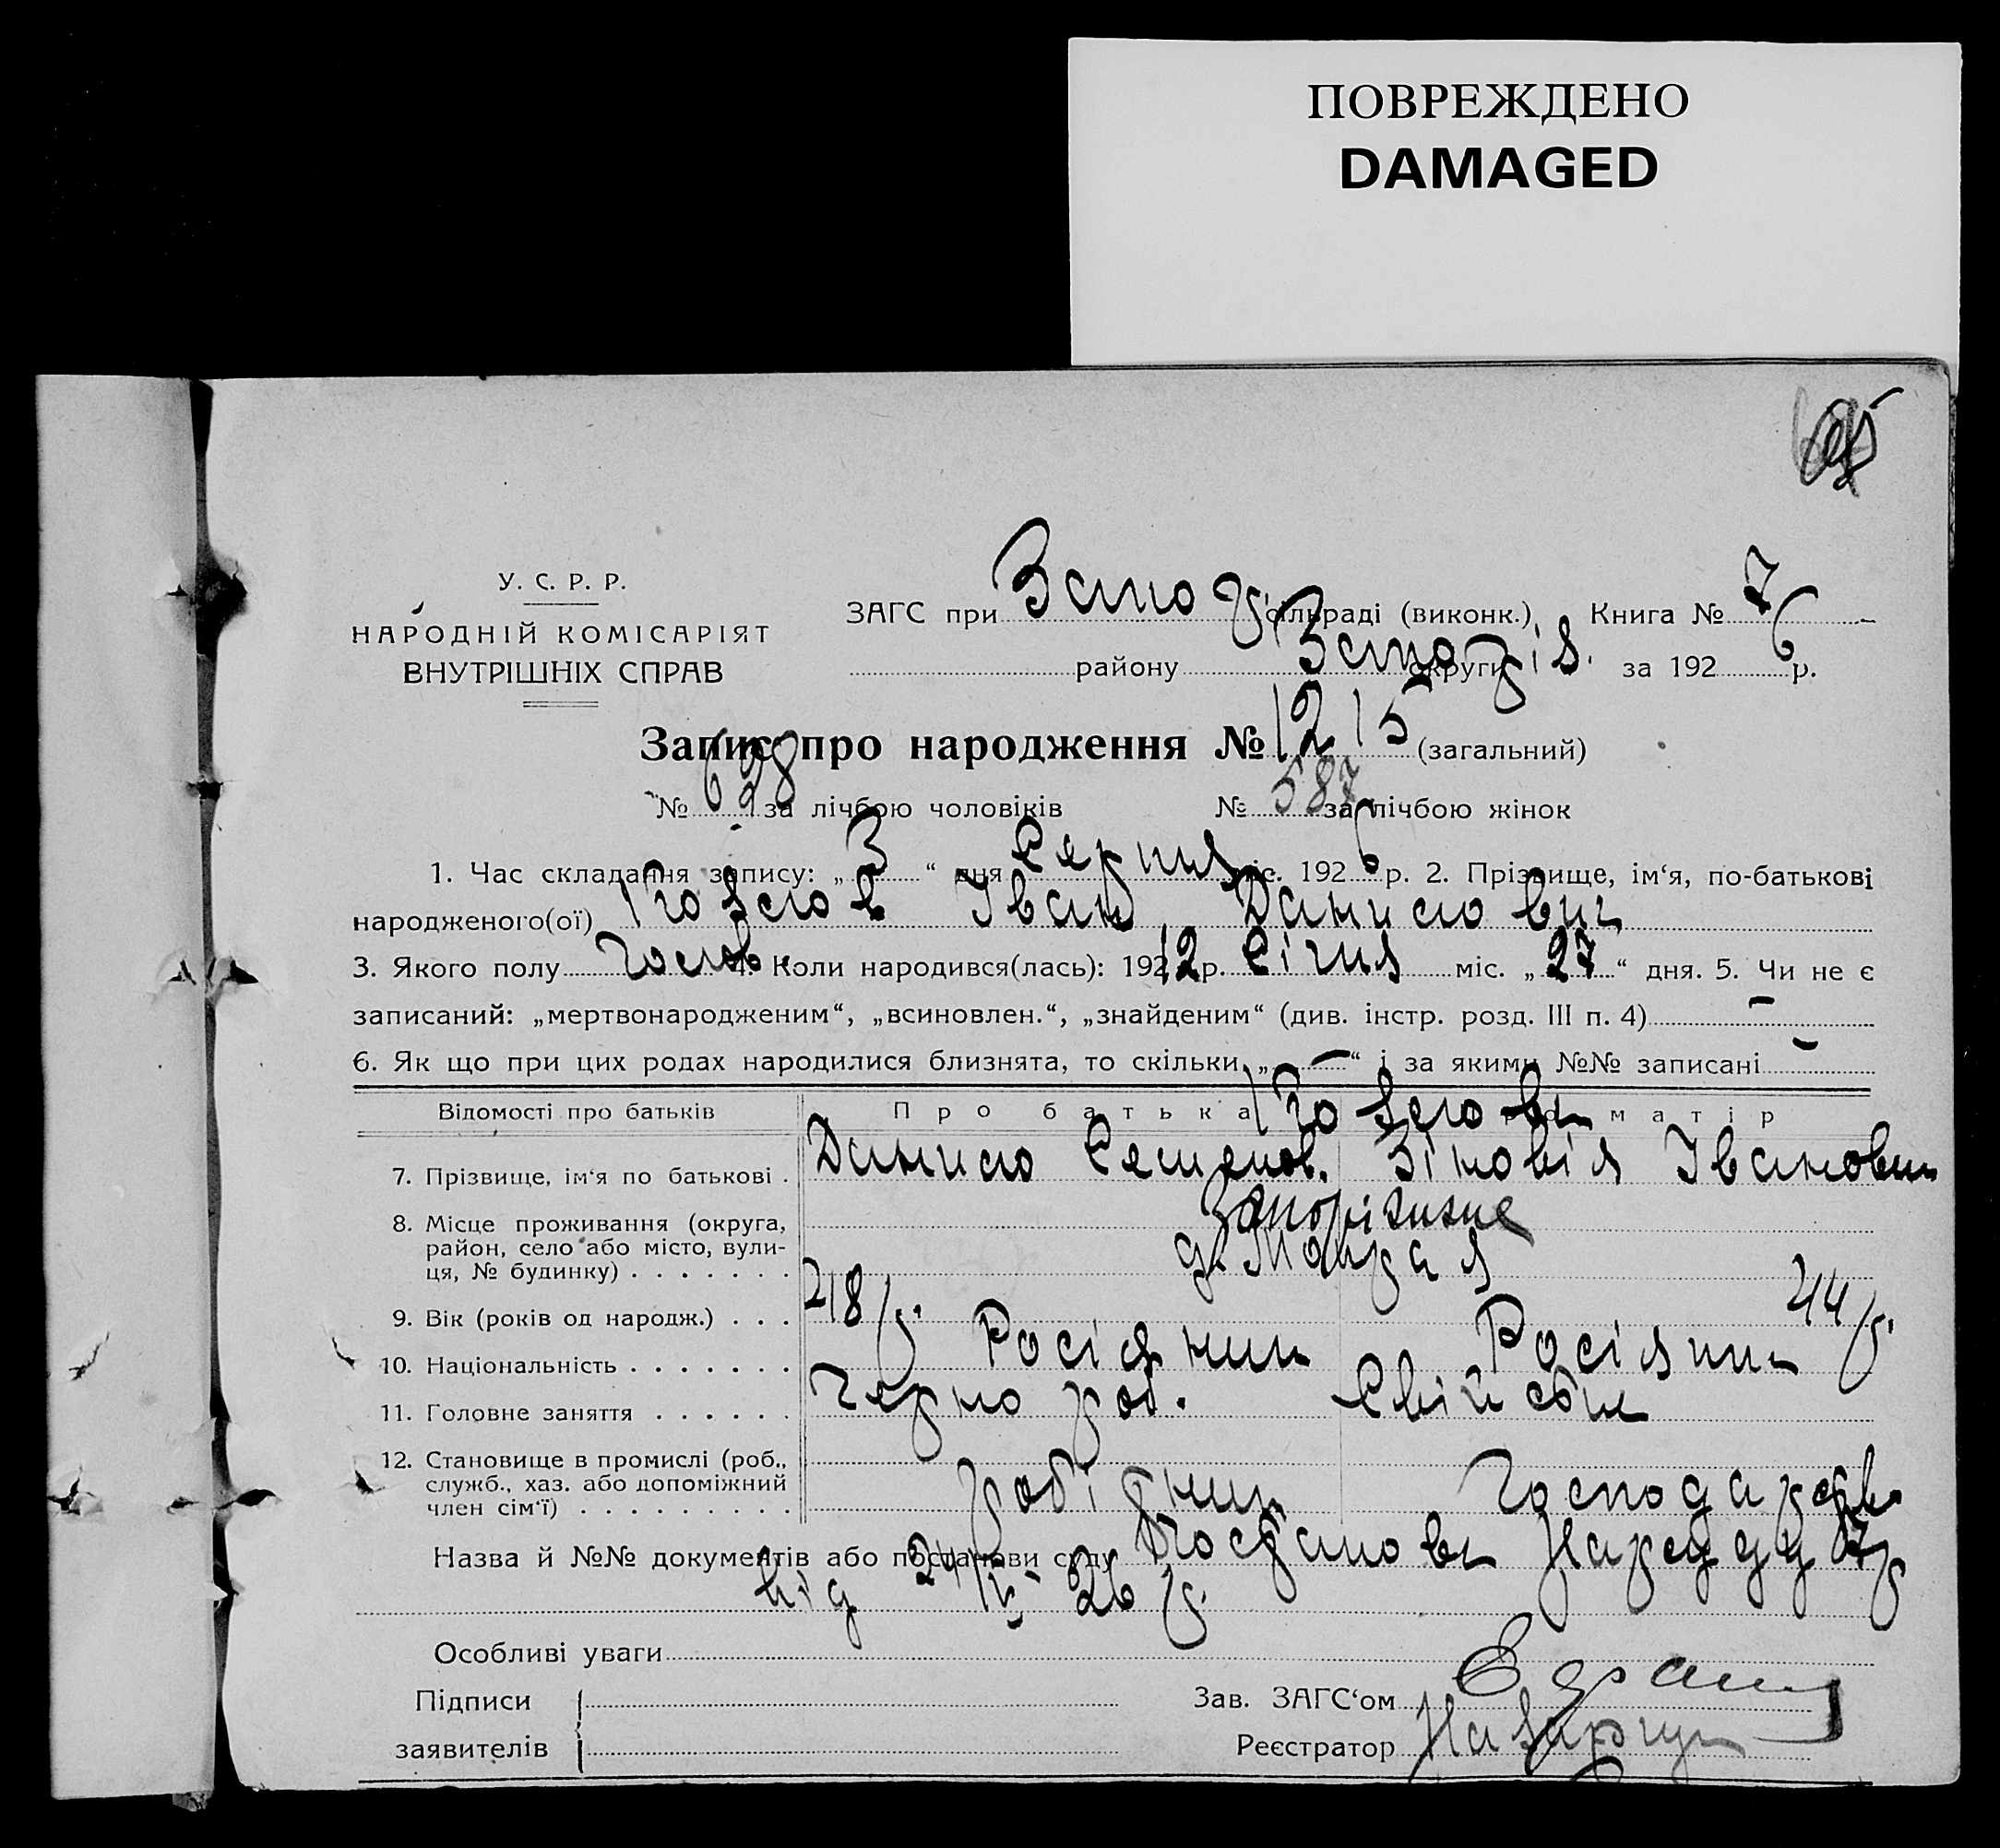 ПОВРЕЖДЕНО
DAMAGED
У. С. Р. Р.
НАРОДНІЙ КОМІСАРІЯТ
ВНУТРІШНІХ СПРАВ
ЗАГС при Запор сільраді (виконк.) Книга № 7
району Запоріз. округи за 1926 р.
Запис про народження № 1215 (загальний)
№ 628 за лічбою чоловіків № 587 за лічбою жінок
1. Час складання запису: „3“ дня Серпня міс. 1926 р. 2. Прізвище, ім‘я, по-батькові
народженого(ої) Іван Данилович
3. Якого полу чолов. 4. Коли народився(лась): 1912 р. Січня міс. „27“ дня. 5. Чи не є
записаний: „мертвонародженим“, „всиновлен.“, „знайденим“ (див. інстр. розд. III п. 4) —
6. Як що при цих родах народилися близнята, то скільки „—“ і за якими №№ записані —
Відомості про батьків Про батька Про матір
7. Прізвище, ім‘я по батькові . Данило Семенов. Зіновія Івановна
8. Місце проживання (округа,
район, село або місто, вули-
ця, № будинку) . . . . . . .
9. Вік (років од народж.) . . . 44 р.
10. Національність . . . . . . . Росіянин Росіянк
11. Головне заняття . . . . . . Чернороб. Свійськ
12. Становище в промислі (роб.,
служб., хаз. або допоміжний
член сім‘ї) . . . . . . . . . робітник Господарств
Назва й №№ документів або постанови суду Постанова
від 26 р.
Особливі уваги
Підписи Зав. ЗАГС‘ом
заявителів Реєстратор